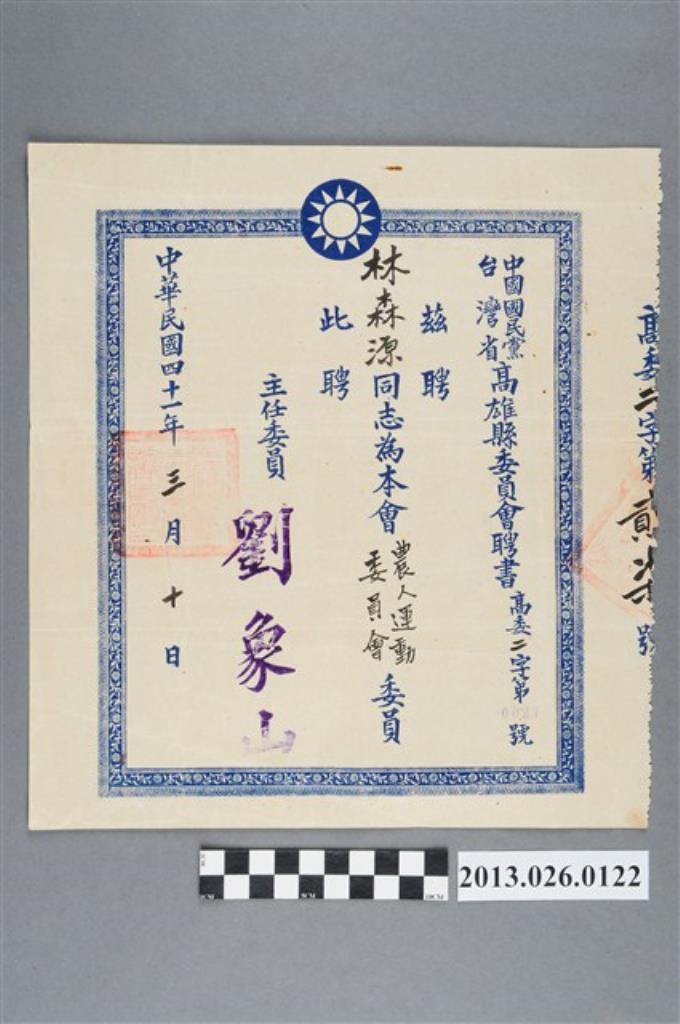 高委二字第貳 號
中國國民黨台灣省高雄縣委員會聘書 高委二字第 號
茲聘
林森源同志為本會農人運動委員會委員
此聘
主任委員 劉象山
中華民國四十一年三月十日
2013.026.0122